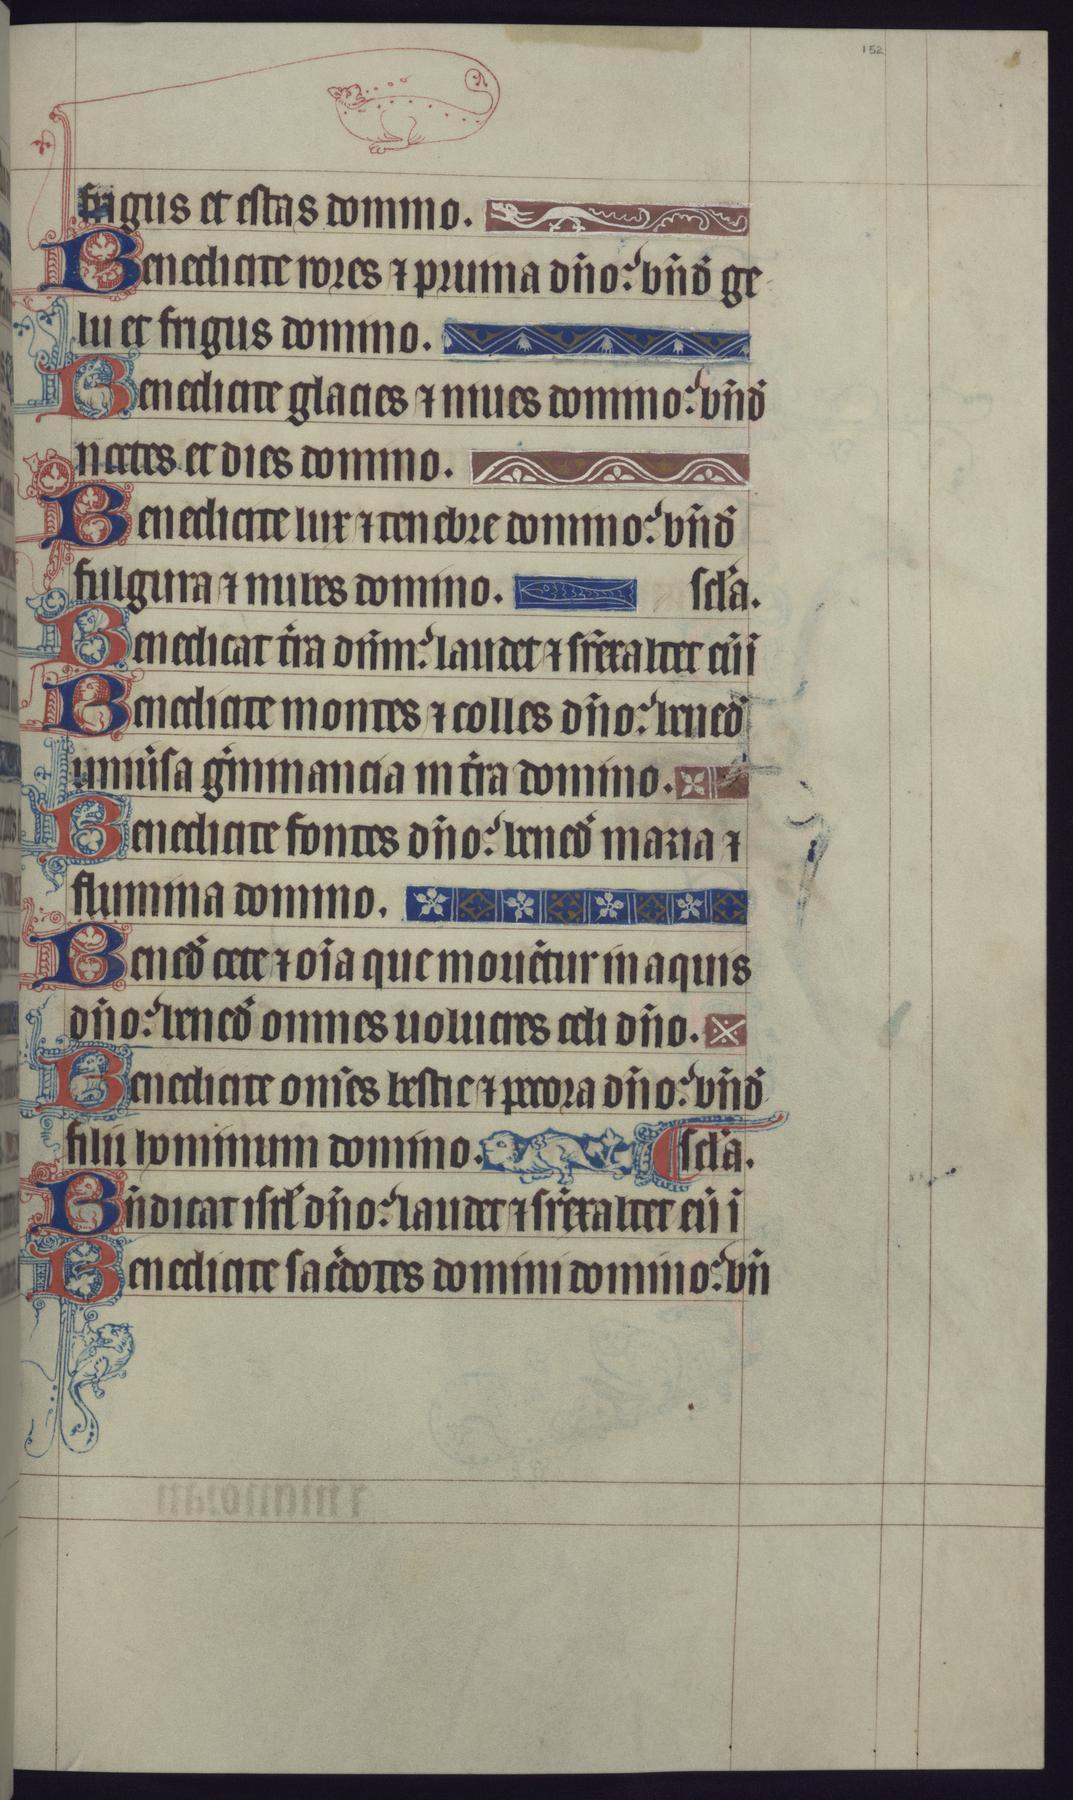 152
frigus et estas domino.
Benedicite rores ⁊ pruina dño: bñd̃ ge
lu et frigus domino.
Benedicite glacies ⁊ niues domino: bñd̃
noctes et dies domino.
Benedicite lux ⁊ tenebre domino: bñd̃
fulgura ⁊ nubes domino. scl̃a.
Benedicat t̃ra dñm: laudet ⁊ sr̃exaltet eũ ĩ
Benedicite montes ⁊ colles dño: bened̃
uniũsa g̃minancia in t̃ra domino.
Benedicite fontes dño: bened̃ maria ⁊
flumina domino.
Bened̃ cete ⁊ oĩa que mouẽtur in aquis
dño: bened̃ omnes uolucres celi dño.
Benedicite om̃es bestie ⁊ pecora dño: bñd̃
filii hominum domino. scl̃a.
Bñdicat isrl̃ dño: laudet ⁊ sr̃exaltet eũ ĩ
Benedicite sac̃dotes domini domino: bñ